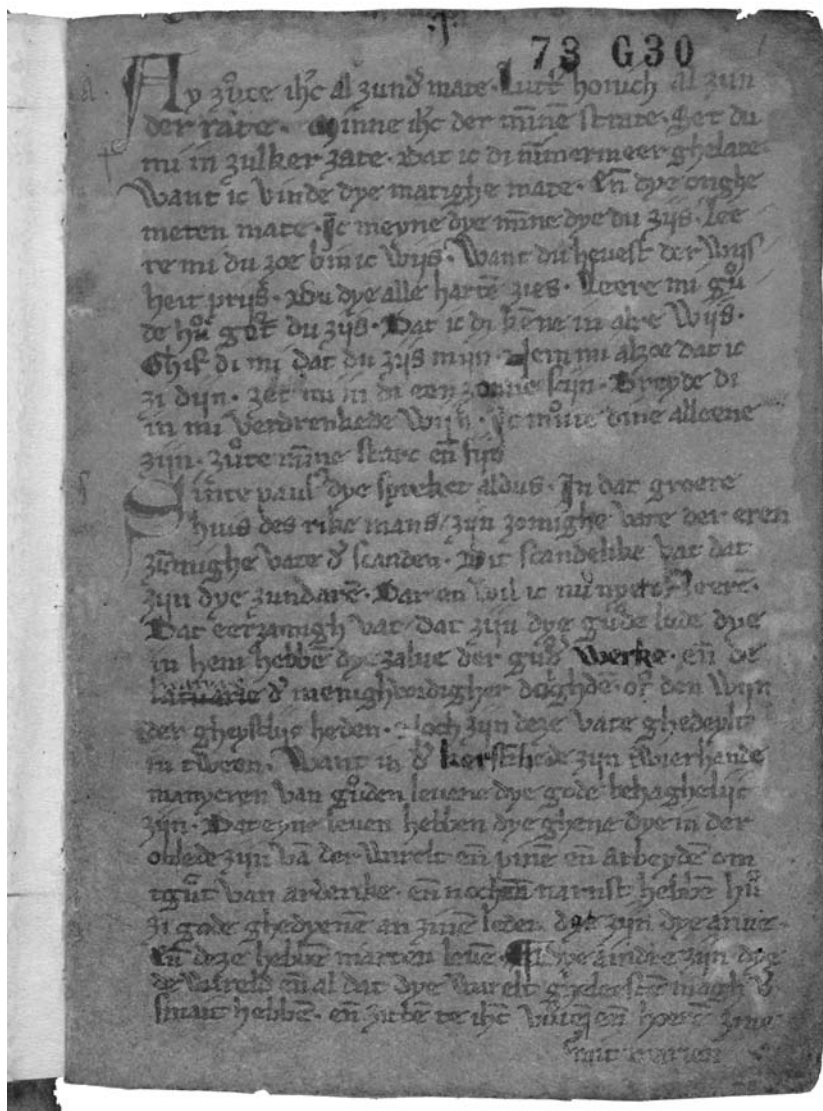 73 G30
Ay zůte ihc al zund' mate. Lutt' honich al zun
der rate. Minne ihc der mīnē strate. Set du
mi in zulker zate. Dat ic di nīmermeer ghelate.
Want ic vinde dye matighe mate. Eñ dye onghe
meten mate. Ic meyne dye mīne dye du zijs. Lee
re mi du zoe bin ic wijs. Want du hevest der wijs
heit prijs. Du dye alle hartē zies. Leere mi gů
de hů get du zijs. Dat ic di kēne in alre wijs.
Ghif di mi dat du zijs mijn. Nem mi alzoe dat ic
zi dijn. zet mi in di een zonne scijn. Breyde di
in mi verdrenkede wijn. Ic můte dine alleene
zijn. zůte mīne starc eñ fijn
Sinte pauls dye spreket aldus. In dat groete
huus des rike mans / zijn zomighe vate der eren
zūmighe vate d' scanden. Dit scandelike vat dat
zijn dye zundarē. Dar en wil ic nu nyet leerē.
Dat eerzamigh vat. dat zijn dye gůde lude dye
in hem hebbē dye zalue der gůd' werke. eñ de
latuarie d' menighvordigher doghdē. of den wijn
der gheystlijc heden. Noch zijn deze vate ghedeylt
in tween. Want in d' kerstēhede zijn twierhande
manyeren van gůden levene dye gode behaghelijc
zijn. Dat eyne leven hebben dye ghene dye in der
oblede zijn vā der wurelt eñ pinē eñ arbeydē om
tgůt van ardenke. eñ nochēn narnst hebbē hů
si gode ghedyenē an zinē leden. dat zijn dye arme.
Eñ deze hebbē marten levē. Dye andre zijn dye
de wureld eñ al dat dye wurelt ghelerstē magh v'
smaut hebbē. eñ zittē te ihc vůtē eñ horēt zine
mit marien